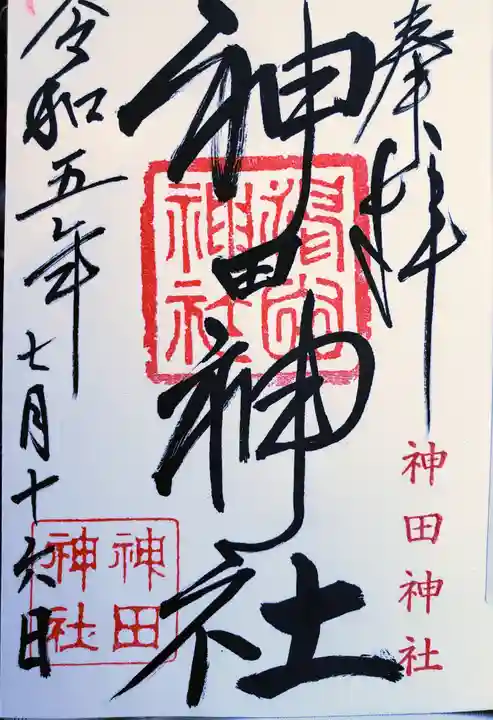 奉拝
神田神社
神田神社
神田
神社
神社
令和五年
七月十六日